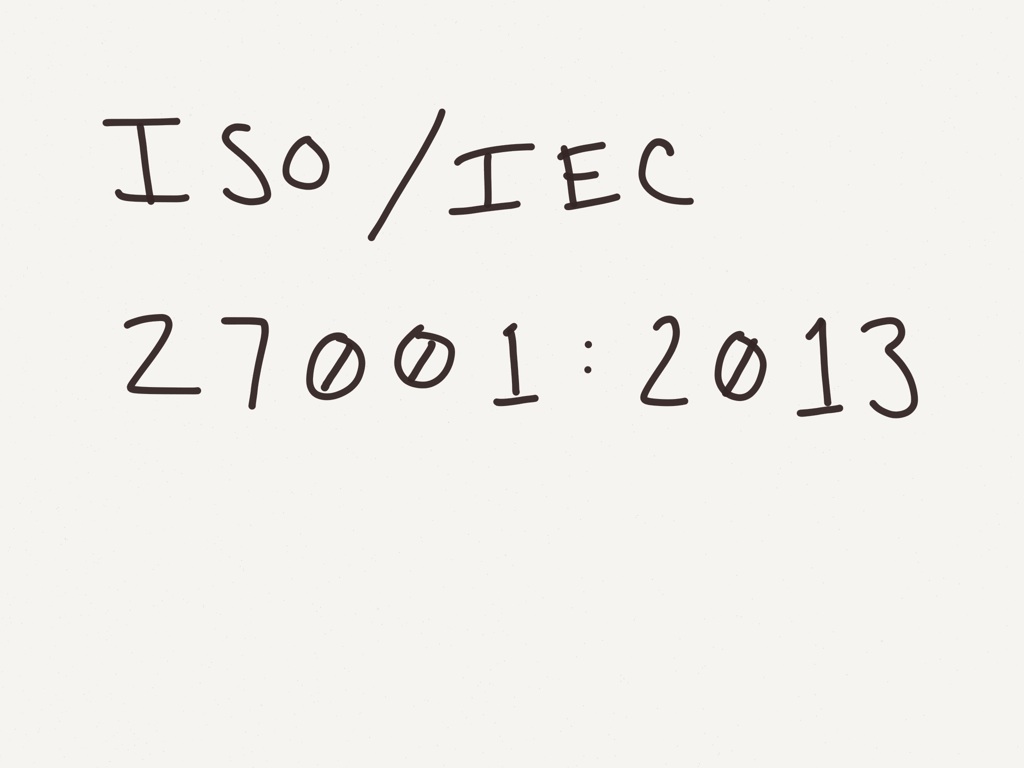 ISO/IEC
27001:2013